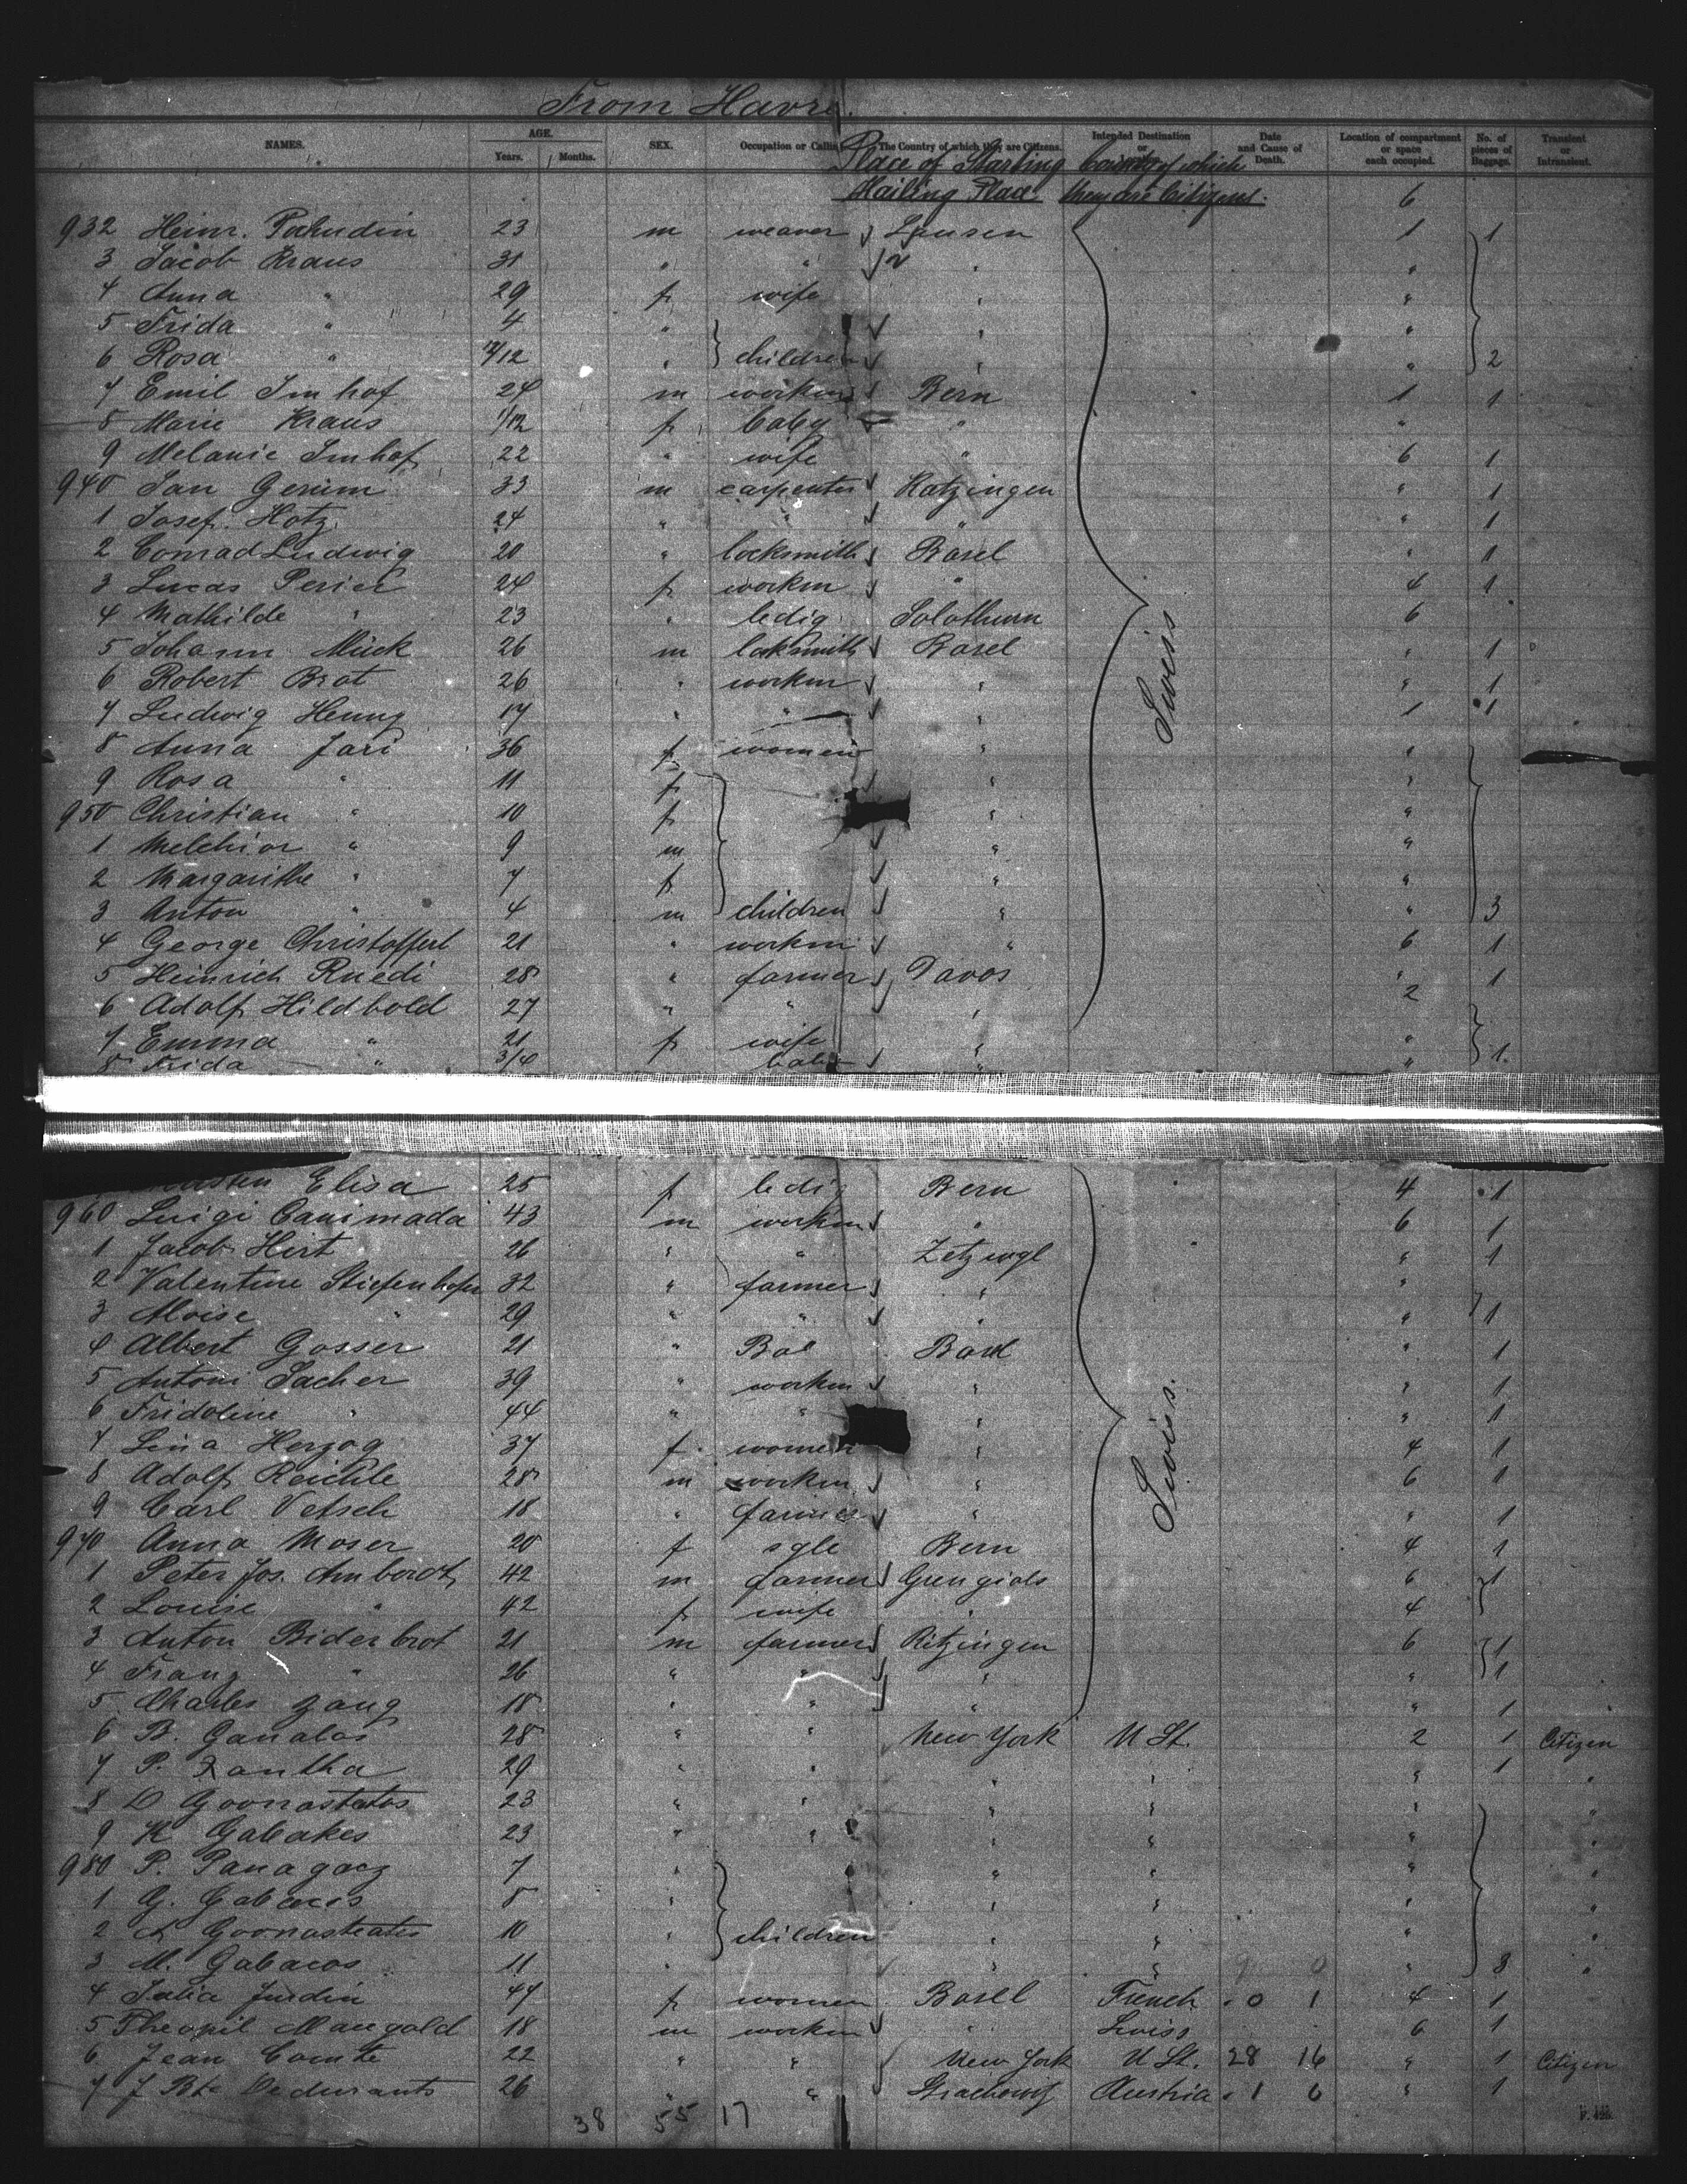 From Havre.
NAMES. AGE. Years. Months. SEX. Occupation or Calling The Country of which they are Citizens. Intended Destination or Date and Cause of Death. Location of compartment or space each occupied. No. of pieces of Baggage. Transient or Intransient.
Place of Starting Country of which
Hailing Place they are Citizens. 6
932 Heinr. 23 m weaver Lausen 1 1
3 Jacob Kraus 31 " " " "
4 Anna " 29 f wife " "
5 Frida " 4 " " "
6 Rosa " /12 " children " " 2
7 Emil Imhof 24 m workm Bern 1 1
8 Marie Kraus 1/12 f baby " "
9 Melanie Imhof 22 " wife " 6 1
940 Jan 33 m carpenter Katzingen " 1
1 Josef Hotz 24 " " " " 1
2 Conrad Ludwig 20 " locksmith Basel " 1
3 Lucas Perier 24 f workm " 4 1
4 Mathilde " 23 " ledig Solothurn 6
5 Johann Mück 26 m locksmith Basel " 1
6 Robert Brot 26 " workm " " 1
7 Ludwig Henny 17 " " " 1 1
8 Anna Jari 36 f women " "
9 Rosa " 11 f " "
950 Christian " 10 f " "
1 Melchior " 9 m " "
2 Margarithe " 7 f " "
3 Anton " 4 m children " " 3
4 George Christoffel 21 " workm " 6 1
5 Heinrich Ruedi 28 " farmer Davos " 1
6 Adolf Hildbold 27 " " " 2
7 Emma " 21 f wife " "
8 Frida " 3/4 baby " " 1
Swiss
Elisa 25 f ledig Bern 4 1
960 Luigi Canimada 43 m workm " 6 1
1 Jacob Hirt 26 " " " 1
2 Valentine Stiefenhofer 32 " farmer " "
3 Aloise " 29 " " " " 1
4 Albert Gosser 21 " Basel " 1
5 Antoni Sacher 39 " workm " " 1
6 Fridoline " 44 " " " " 1
7 Lina Herzog 37 f women " 4 1
8 Adolf Reichle 28 m workm " 6 1
9 Carl Vetsch 18 " farmer " " 1
970 Anna Moser 20 f sgle Bern 4 1
1 Peter Jos. Ambordt 42 m farmer Grengiols 6 1
2 Louise " 42 f wife " 4
3 Anton Biderbrot 21 m farmer Ritzingen 6 1
4 Franz " 26 " " " " 1
5 Charles Zaug 18 " " " " 1
Swiss.
6 B. Ganalos 28 " " New York U St. 2 1 Citizen
7 P. Xantha 29 " " " " " 1 "
8 D Goonastatos 23 " " " " "
9 K Gabakes 23 " " " " " "
980 P. 7 " " " " "
1 G. 8 " " " " "
2 10 " children " " " "
3 M. Gabacos 11 " " " " 8 "
4 Julia Jurdin 47 f women Basel French 0 1 4 1
5 Theopil Mangold 18 m workm " Swiss 6 1
6 Jean Comte 22 " " New York U St. 28 16 " 1 Citizen
7 J Bte 26 " " Austria 1 6 " 1
38 55 17